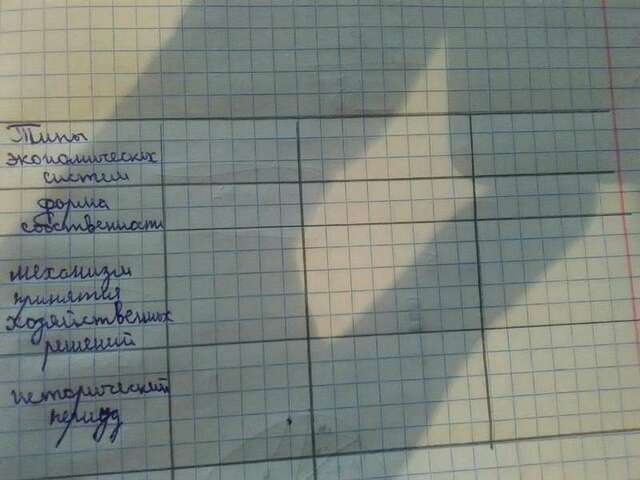 Типы
экономических
систем
форма
собственности
механизм
принятия
хозяйственных
решений
исторический
период